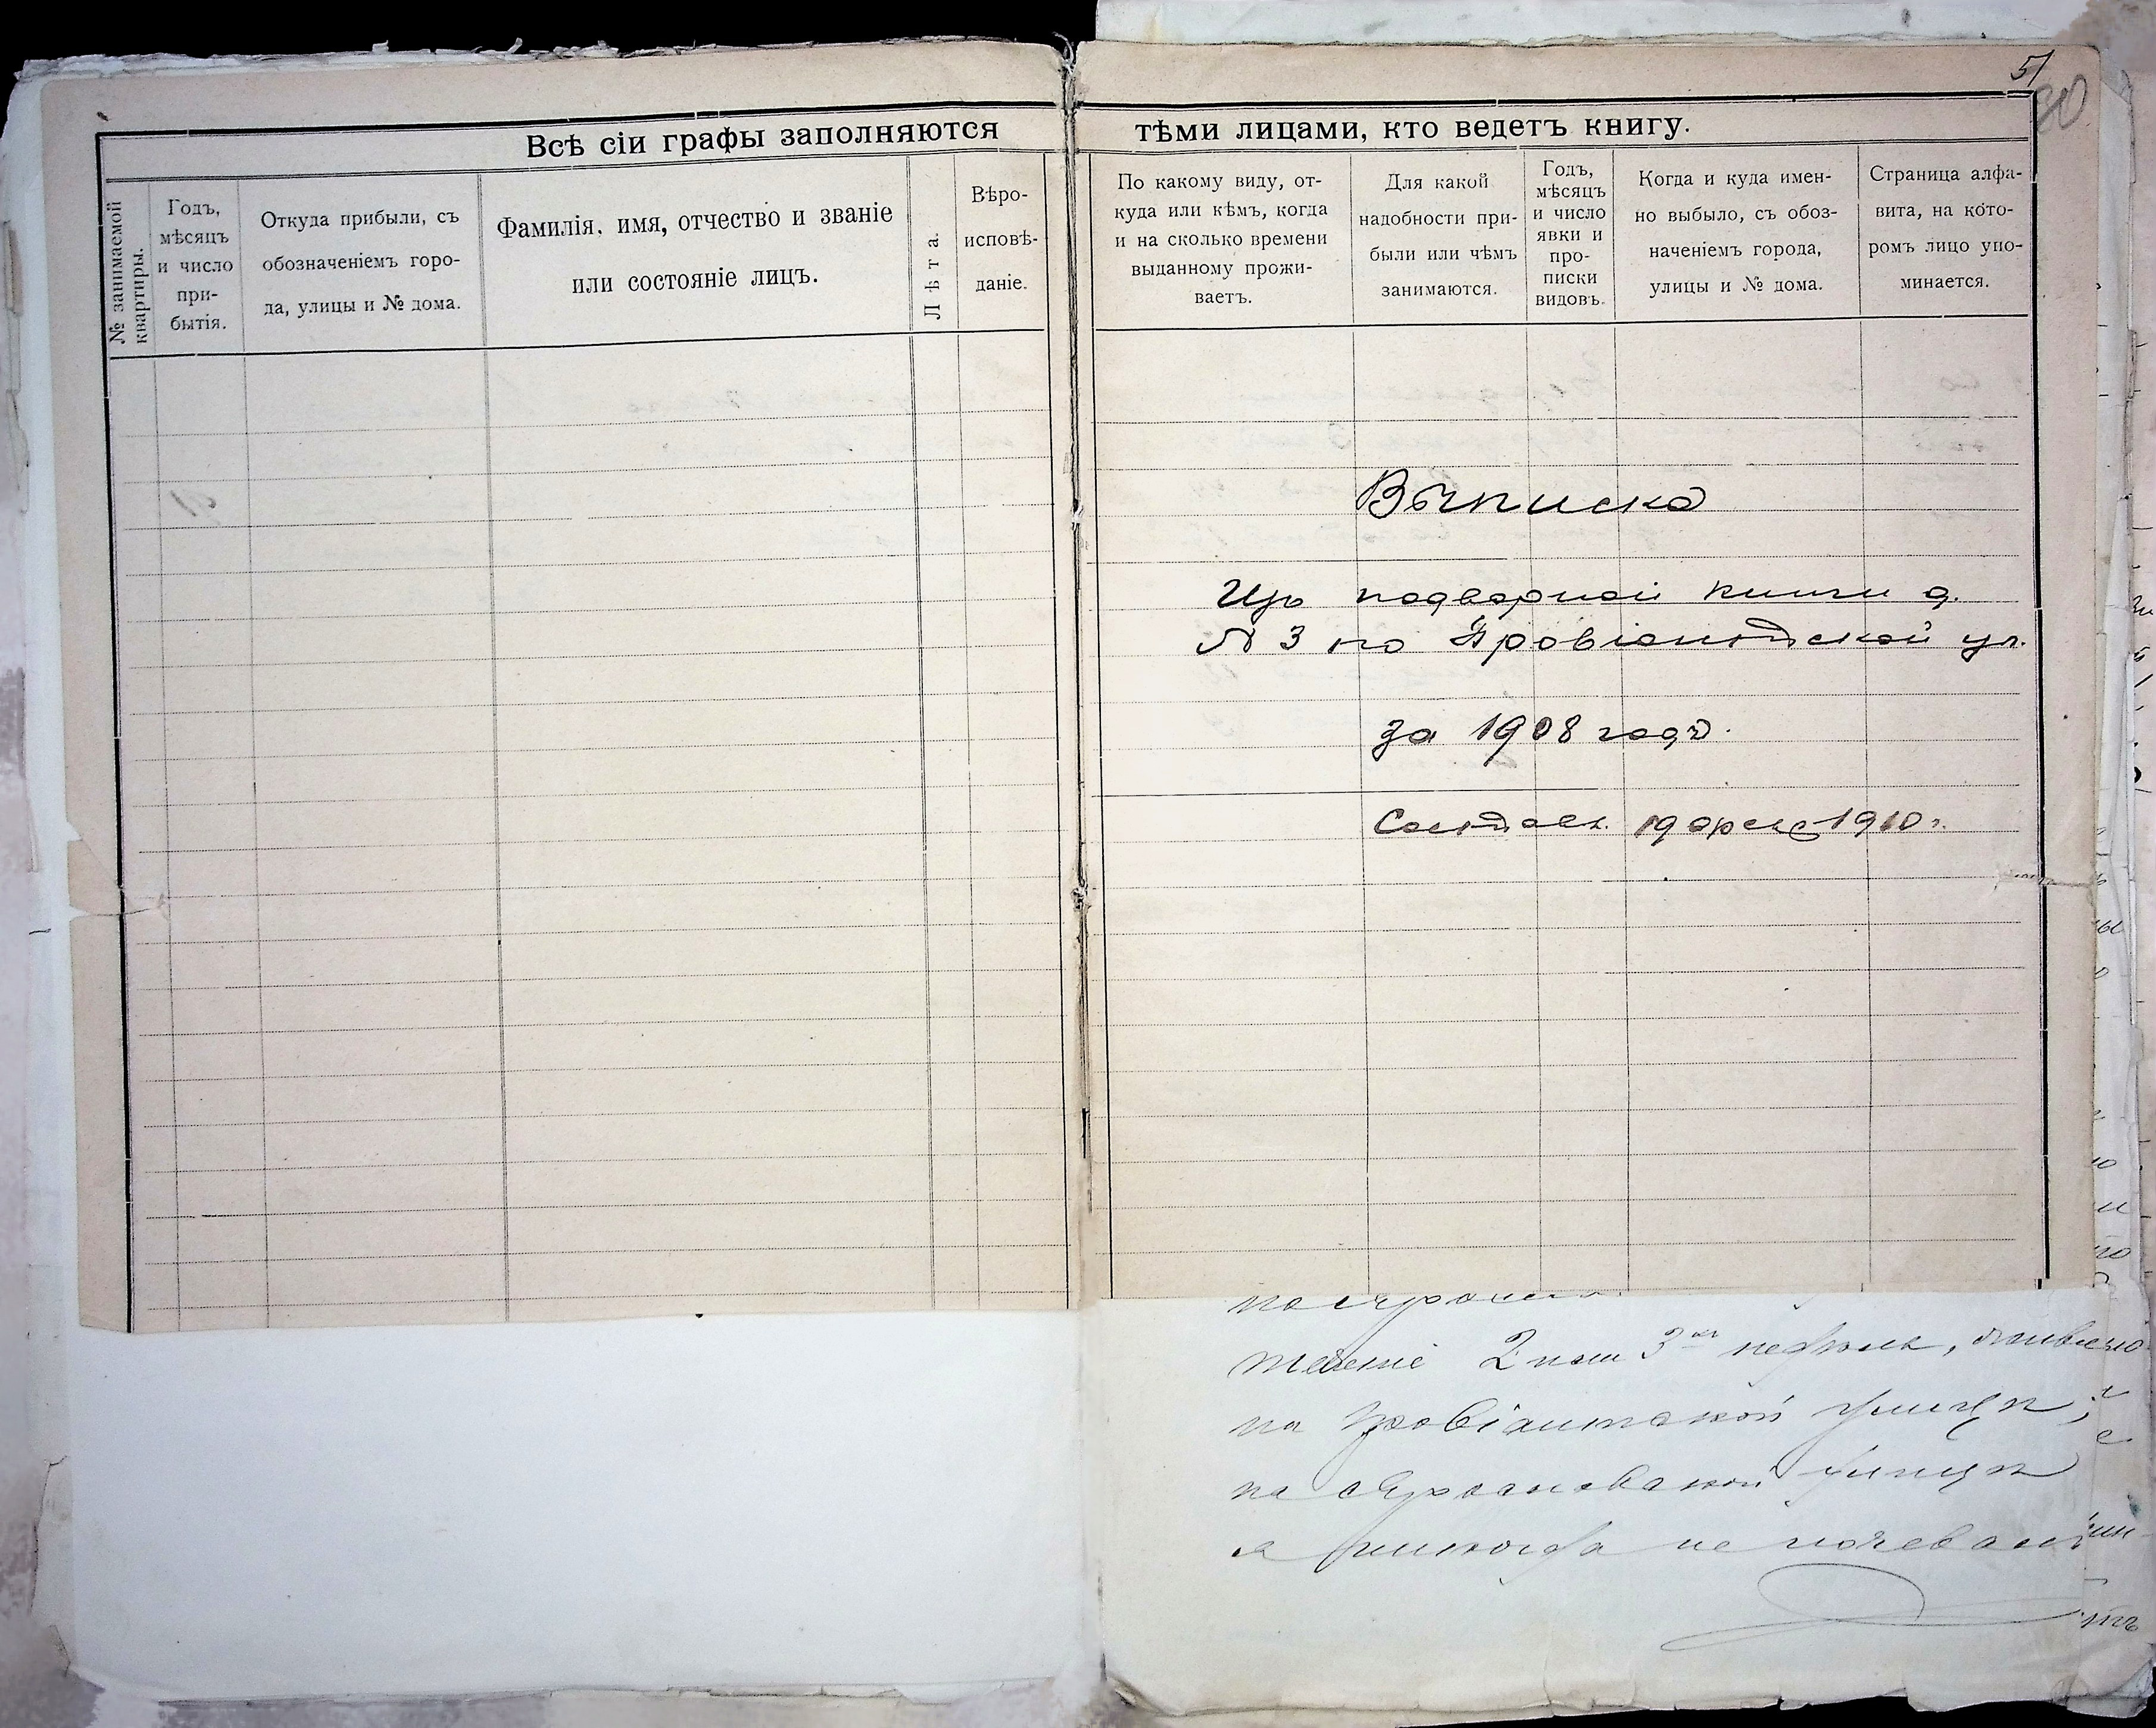 51
80
Всѣ сіи графы заполняются тѣми лицами, кто ведетъ книгу.
№ занимаемой
квартиры.
Годъ,
мѣсяцъ
и число
при-
бытія.
Откуда прибыли, съ
обозначеніемъ горо-
да, улицы и № дома.
Фамилія, имя, отчество и званіе
или состояніе лицъ.
Лѣта.
Вѣро-
исповѣ-
даніе.
По какому виду, от-
куда или кѣмъ, когда
и на сколько времени
выданному прожи-
ваетъ.
Для какой
надобности при-
были или чѣмъ
занимаются.
Годъ,
мѣсяцъ
и число
явки и
про-
писки
видовъ.
Когда и куда имен-
но выбыло, съ обоз-
наченіемъ города,
улицы и № дома.
Страница алфа-
вита, на кото-
ромъ лицо упо-
минается.
Выписка
Изъ подворной книги д.
№ 3 по Провіантской ул.
за 1908 годъ.
19 1910 г.
2 или 3 недѣли,
на Провіантской улицѣ,
на улицѣ
я никогда не ночевалъ